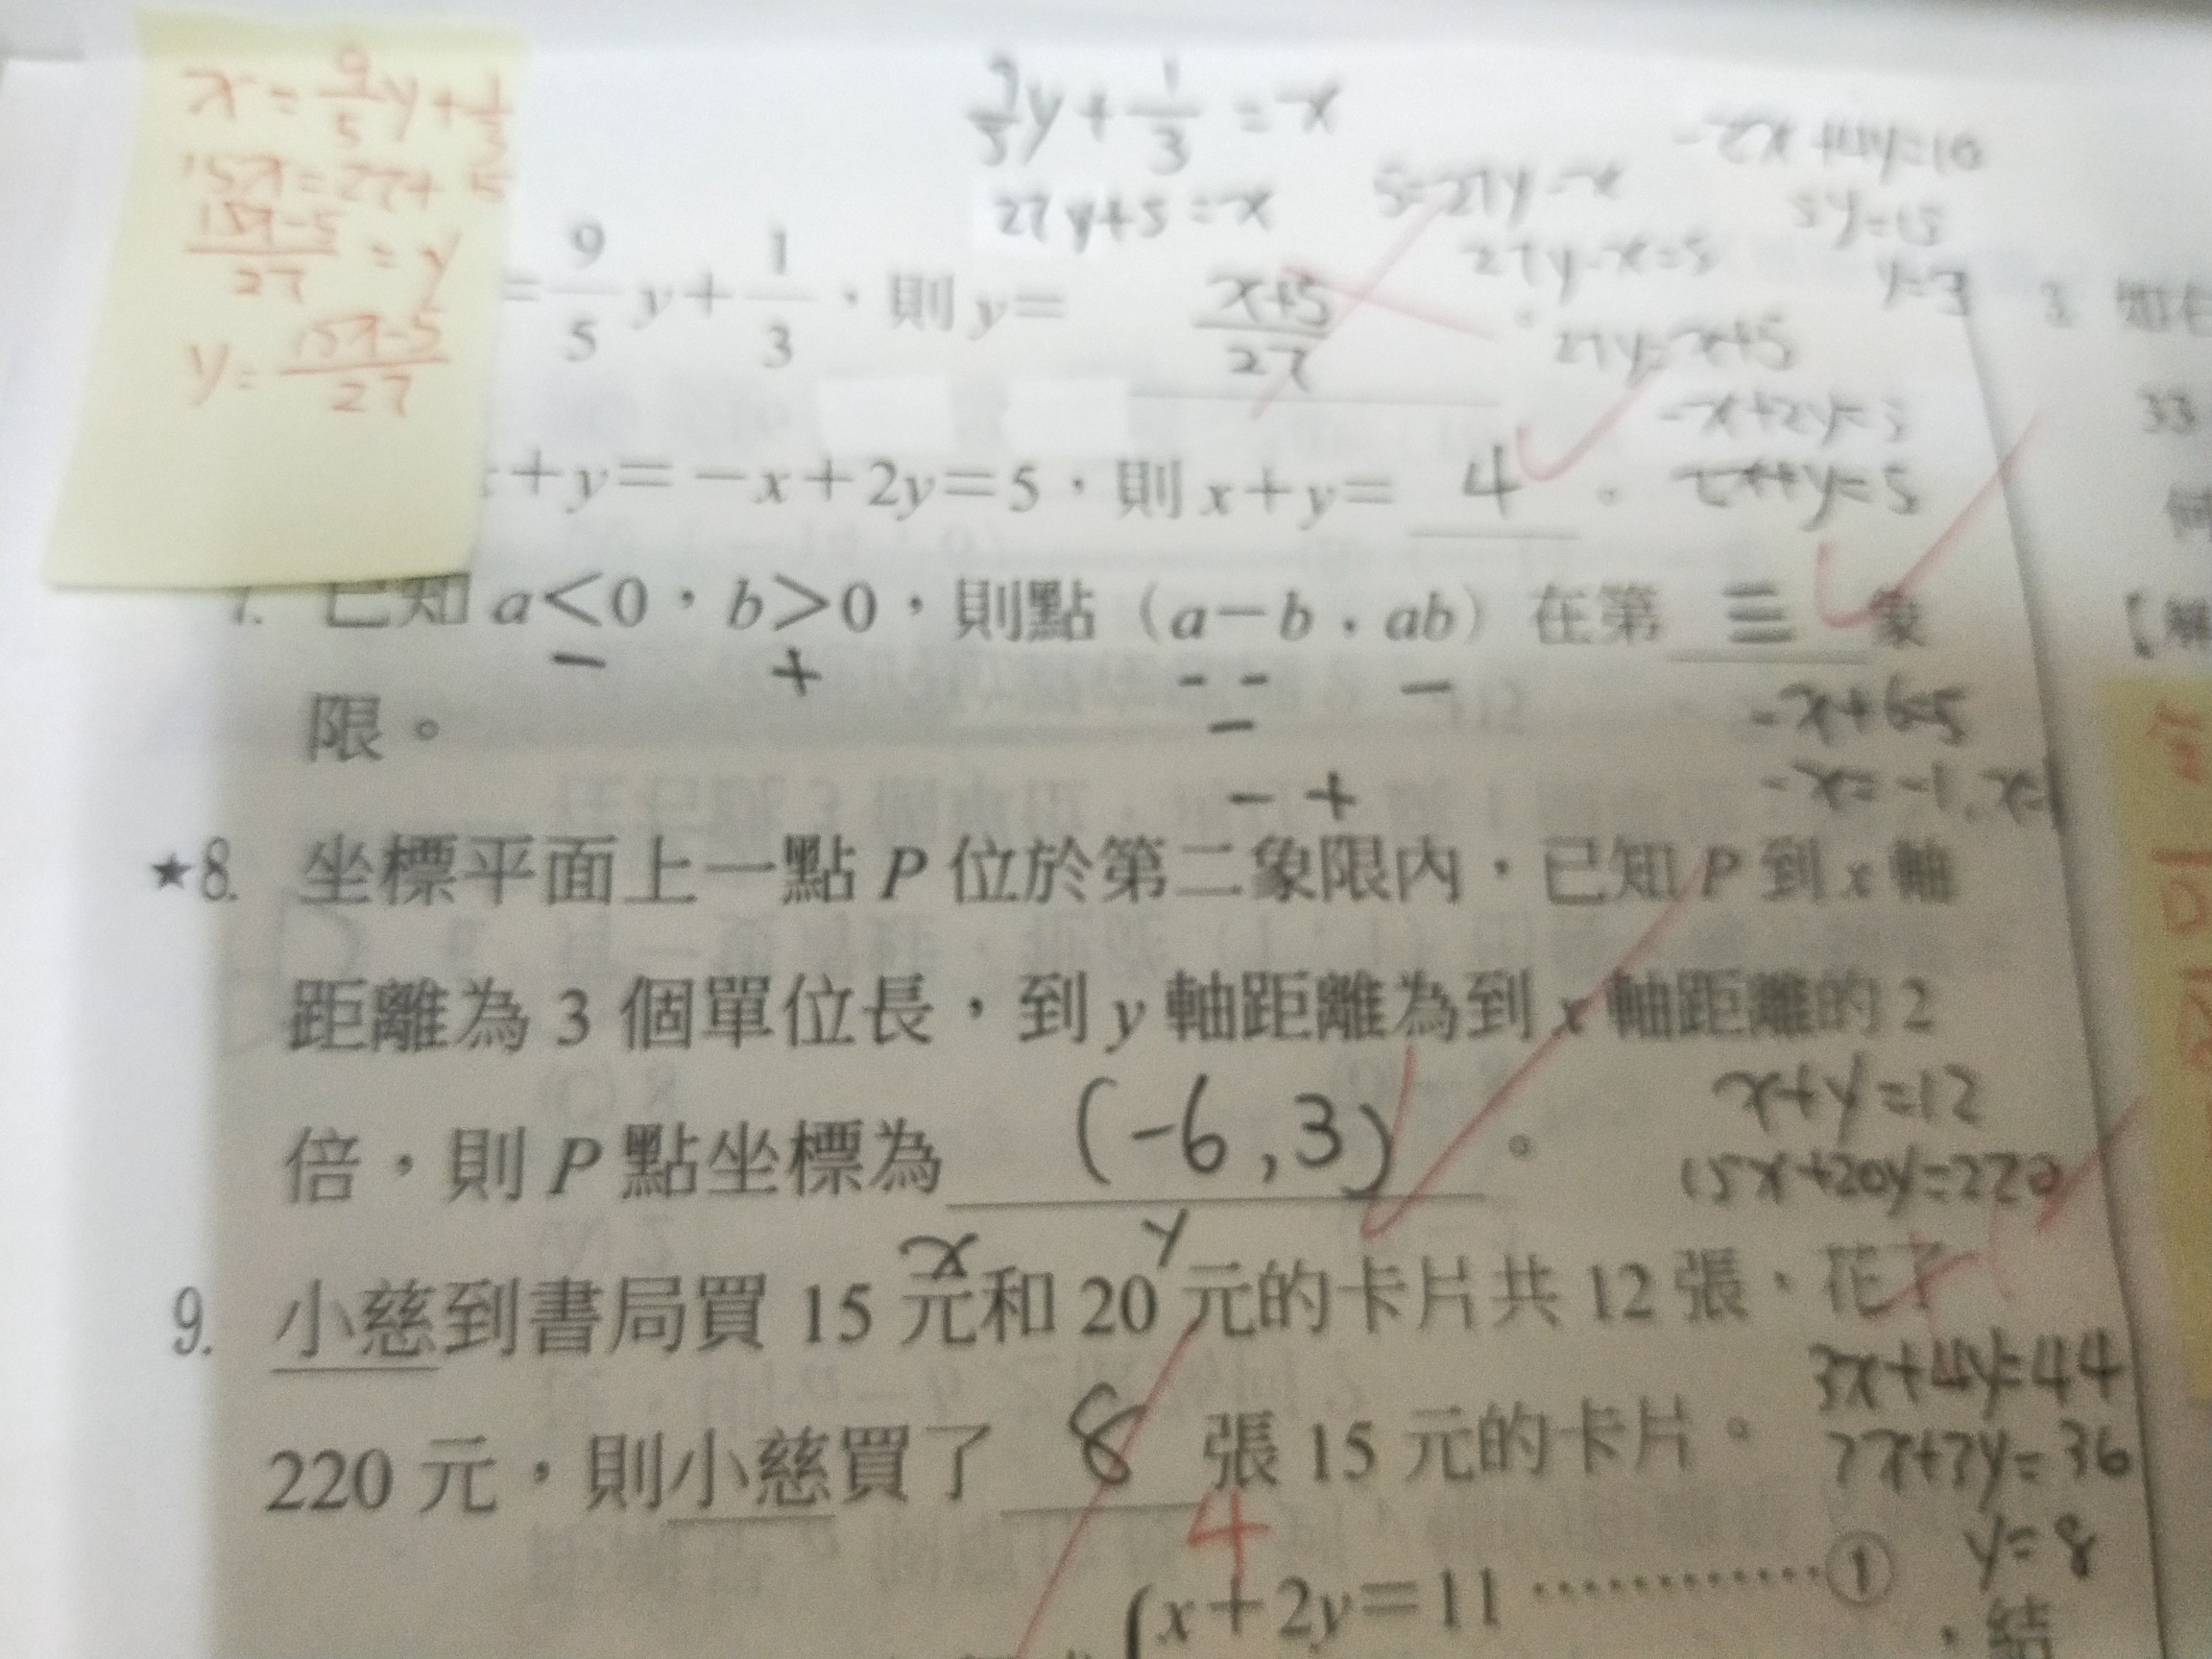 x = 9/5 y + 1/3
15x = 27 + 5
15x-5/27 = y
y = 15x-5/27
9/5 y + 1/3 = x
27y+5 = x
5=27y-x
27y-x=5
27y=x+5
-2x+4y=10
5y=15
y=3
= 9/5 y + 1/3，則 y = x+5/27
-x+2y=5
2x+y=5
+y=-x+2y=5，則 x+y= 4 。
7. 已知 a<0，b>0，則點（a-b，ab）在第 三 象
- + - - -
限。
-
-x+6=5
-x=-1
- +
★8. 坐標平面上一點 P 位於第二象限內，已知 P 到 x 軸
距離為 3 個單位長，到 y 軸距離為到 x 軸距離的 2
倍，則 P 點坐標為 (-6,3) 。
x+y=12
15x+20y=220
x y
9. 小慈到書局買 15 元和 20 元的卡片共 12 張，花了
3x+4y=44
3x+3y=36
y=8
220 元，則小慈買了 8 張 15 元的卡片。
4
x+2y=11 …………①
，結